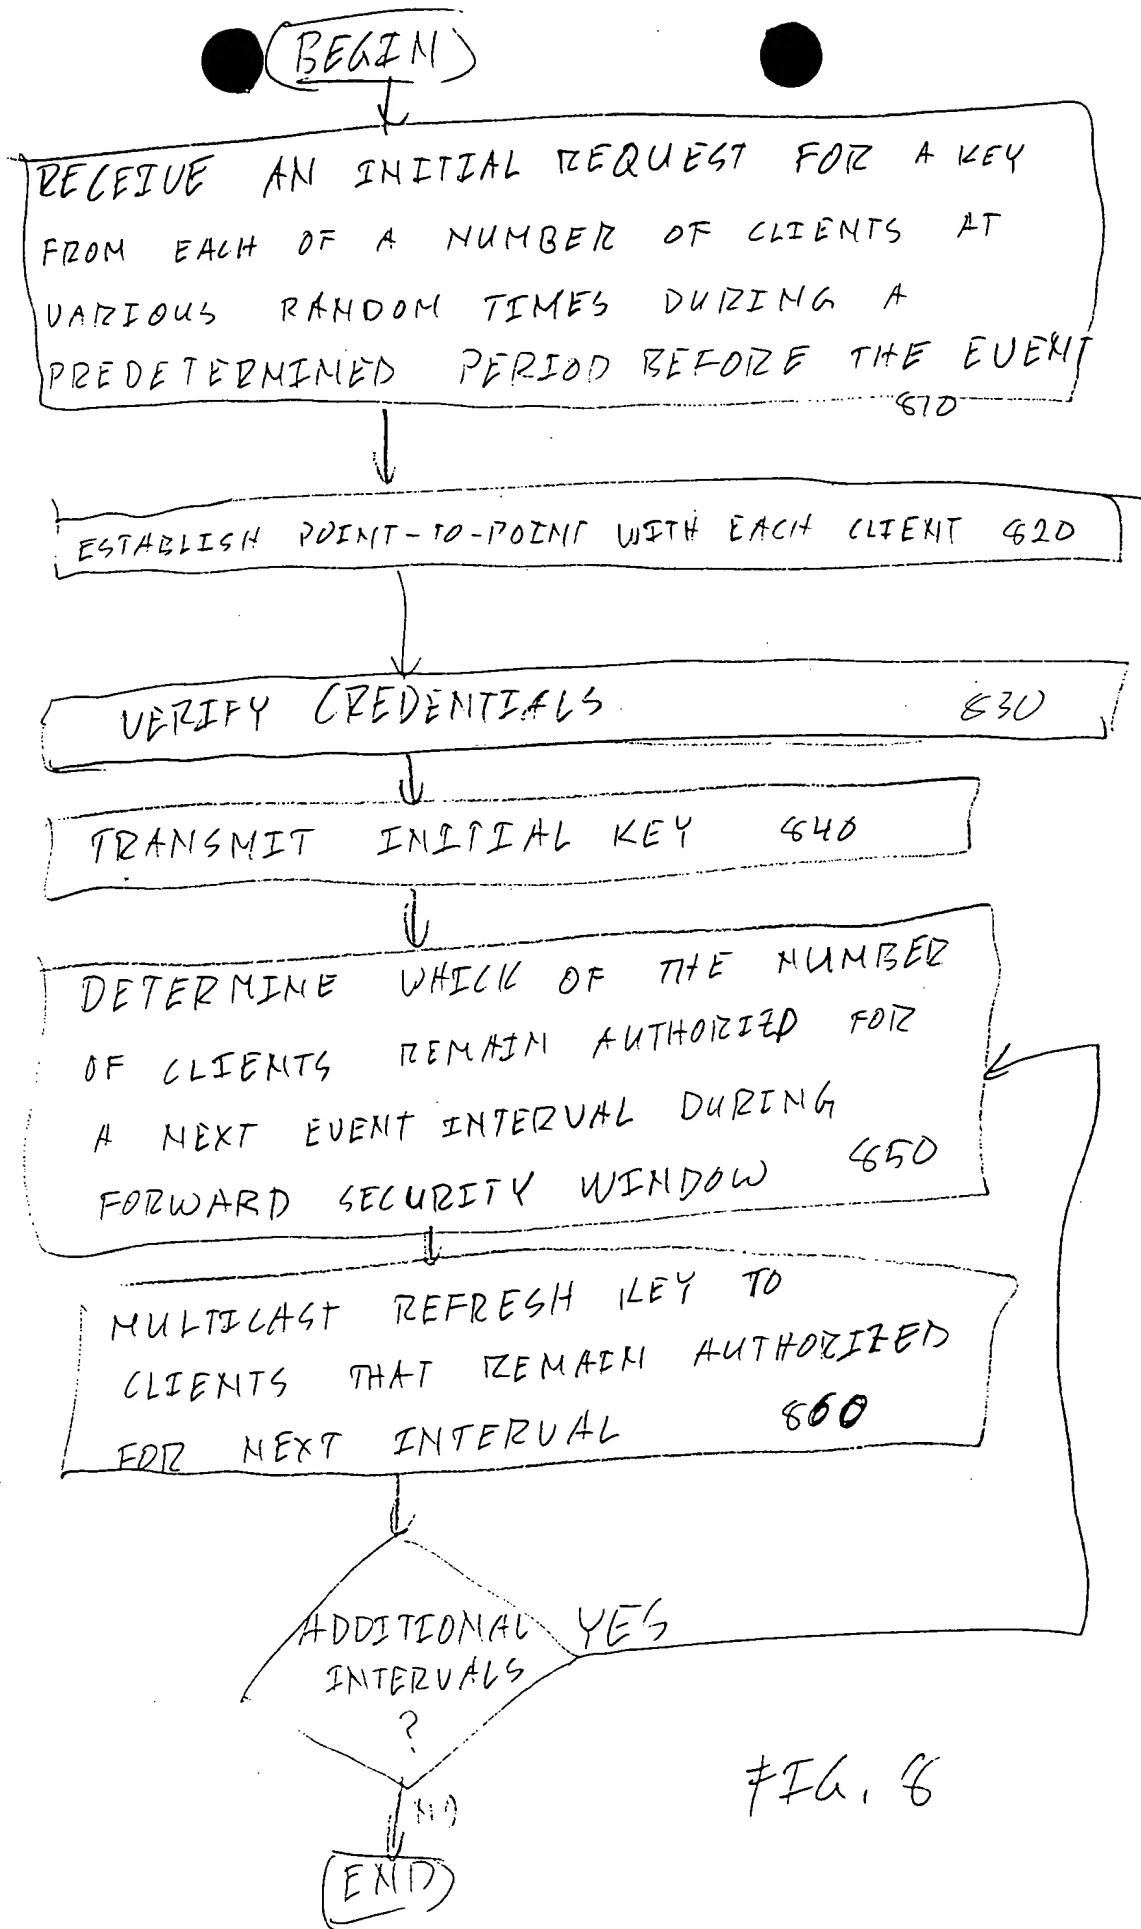 BEGIN
RECEIVE AN INITIAL REQUEST FOR A KEY
FROM EACH OF A NUMBER OF CLIENTS AT
VARIOUS RANDOM TIMES DURING A
PREDETERMINED PERIOD BEFORE THE EVENT
810
ESTABLISH POINT-TO-POINT WITH EACH CLIENT 820
VERIFY CREDENTIALS 830
TRANSMIT INITIAL KEY 840
DETERMINE WHICH OF THE NUMBER
OF CLIENTS REMAIN AUTHORIZED FOR
A NEXT EVENT INTERVAL DURING
FORWARD SECURITY WINDOW 850
MULTICAST REFRESH KEY TO
CLIENTS THAT REMAIN AUTHORIZED
FOR NEXT INTERVAL 860
ADDITIONAL YES
INTERVALS
?
NO
END
FIG. 8